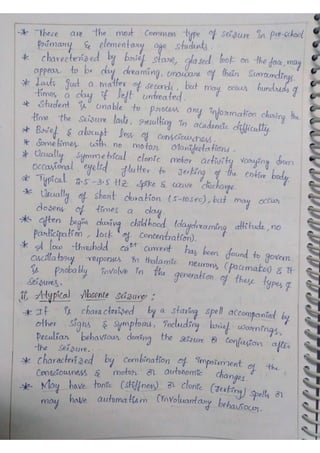 * These are the most common type of seizure in pre-school
primary & elementary age students.
* Charecterised by brief stare, glazed look on the face, may
appear to be day dreaming, unaware of their surroundings.
* Lasts Just a matter of seconds but may occur hundreds of
times a day if left untreated.
* Student is unable to process any information during the
time the seizure lasts. resulting in academic difficulty.
* Brief & abrupt loss of consciousness.
* Sometimes with no motor manifestations.
* Usually symmetrical clonic motor activity varying from
occasional eyelid flutter to Jerking of the entire body.
* Typical 2.5-3.5 Hz spike & wave discharge.
* Usually of short duration (5-10sec), but may occur
dozens of times a day.
* Often begin during childhood (daydreaming attitude, no
participation, lack of concentration).
* A low threshold ca²⁺ current has been found to govern
Oscillatory responses in thalamic neurons (pacemakers) & it
is probably involve in the generation of these types of
seizures.
ii. Atypical Absence seizure :
* It is characterised by a staring spell accompanied by
other signs & symptoms, including brief warnings,
Peculiar behaviour during the seizure & confusion after
the seizure.
* Characterised by combination of impairment of the
Consciousness & motor or autonomic changes
* May have tonic (stiffness) or clonic (Jerking) spells or
may have automatism (involuantary behaviour.